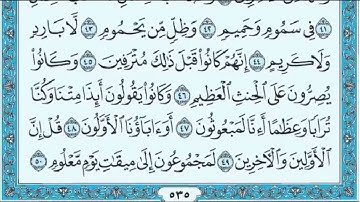 فِى سَمُومٍ وَحَمِيمٍ ٤٢ وَظِلٍّ مِّن يَحْمُومٍ ٤٣ لَّا بَارِدٍ
وَلَا كَرِيمٍ ٤٤ إِنَّهُمْ كَانُوا۟ قَبْلَ ذَٰلِكَ مُتْرَفِينَ ٤٥ وَكَانُوا۟
يُصِرُّونَ عَلَى ٱلْحِنثِ ٱلْعَظِيمِ ٤٦ وَكَانُوا۟ يَقُولُونَ أَئِذَا مِتْنَا وَكُنَّا
تُرَابًا وَعِظَٰمًا أَءِنَّا لَمَبْعُوثُونَ ٤٧ أَوَءَابَآؤُنَا ٱلْأَوَّلُونَ ٤٨ قُلْ إِنَّ
ٱلْأَوَّلِينَ وَٱلْءَاخِرِينَ ٤٩ لَمَجْمُوعُونَ إِلَىٰ مِيقَٰتِ يَوْمٍ مَّعْلُومٍ ٥٠
٥٣٥